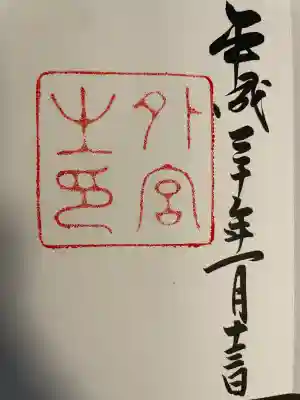 平成三十年一月十三日
外宮
之印